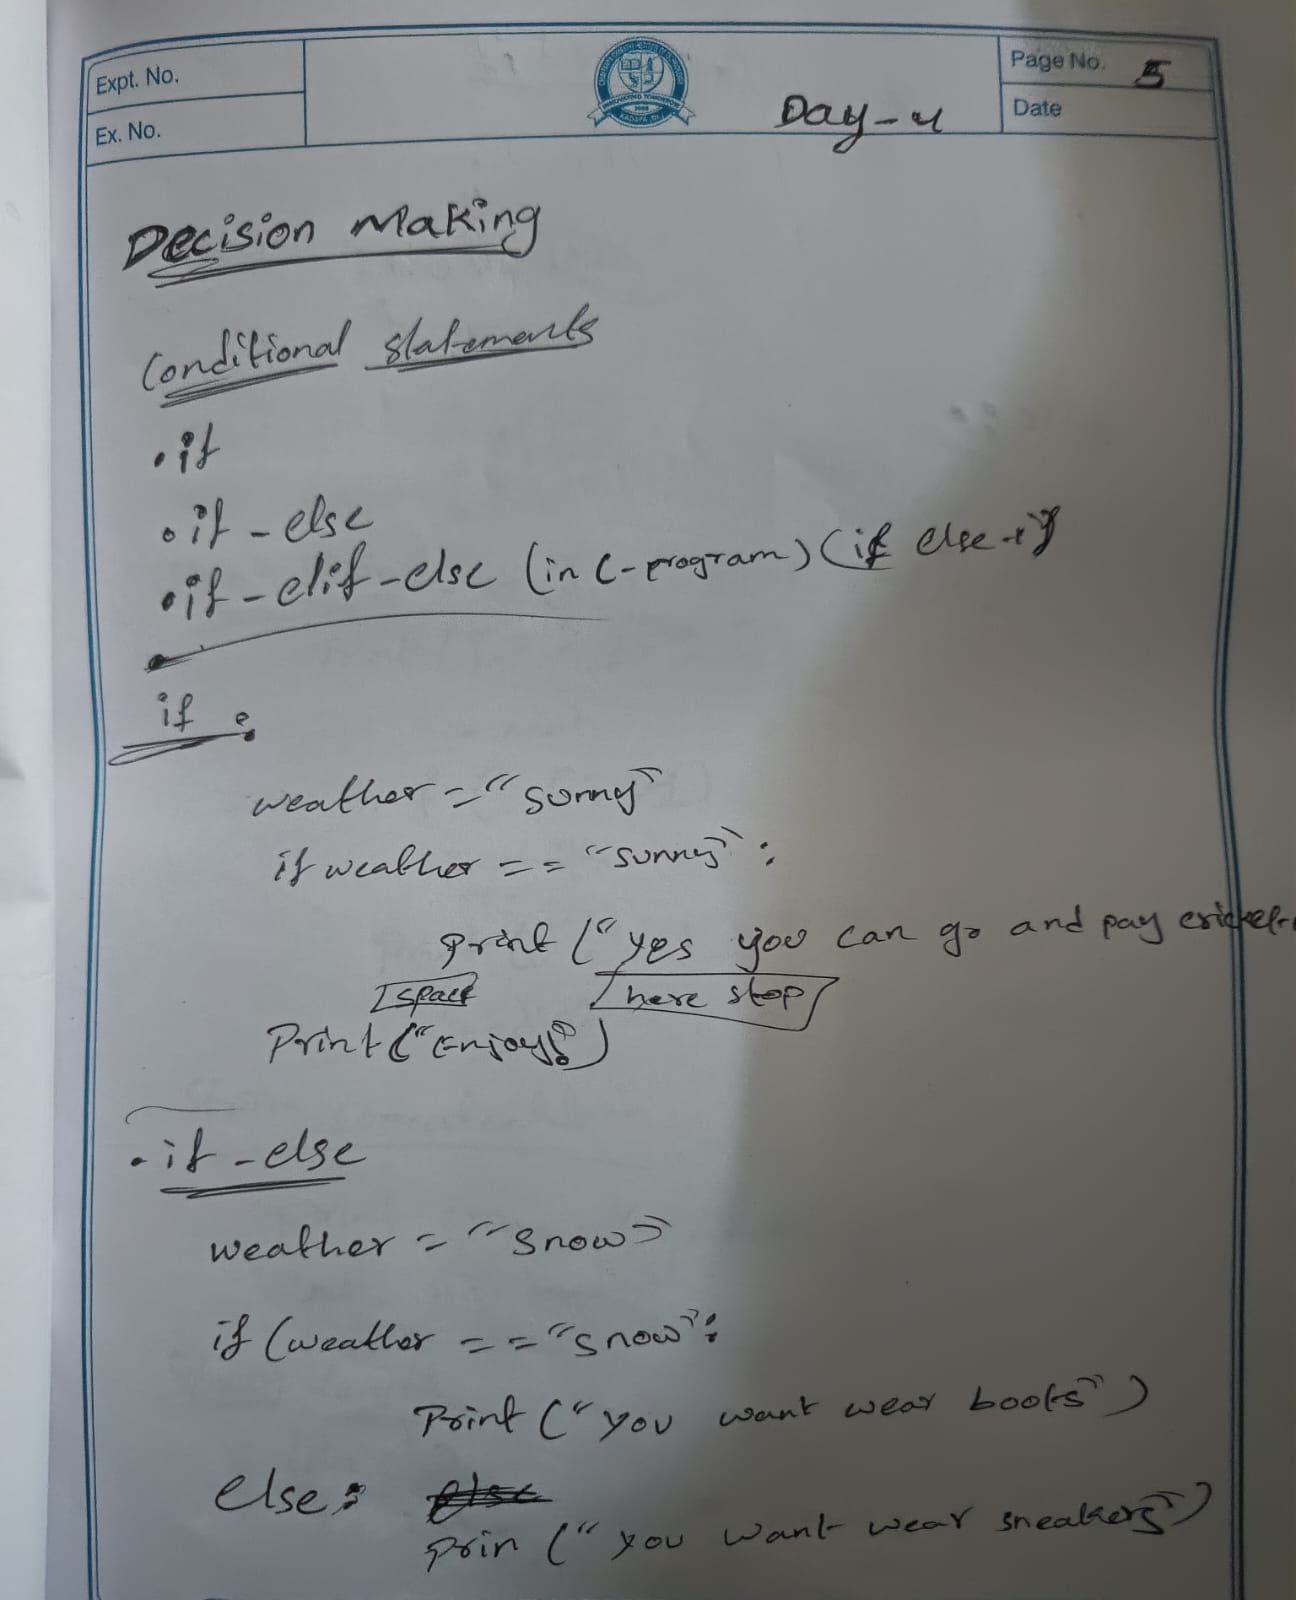 Expt. No.
Page No. 5
Ex. No.
Day-4
Date
Decision Making
Conditional statements
• if
• if - else
• if - elif - else (in C-program) (if else-if
if :
weather = "sunny"
if weather == "sunny" :
print ("yes you can go and pay cricket
space
here stop
Print ("Enjoy!")
• if - else
weather = "snow"
if (weather == "snow":
Print ("you want wear boots")
else:
prin ("you want wear sneakers")